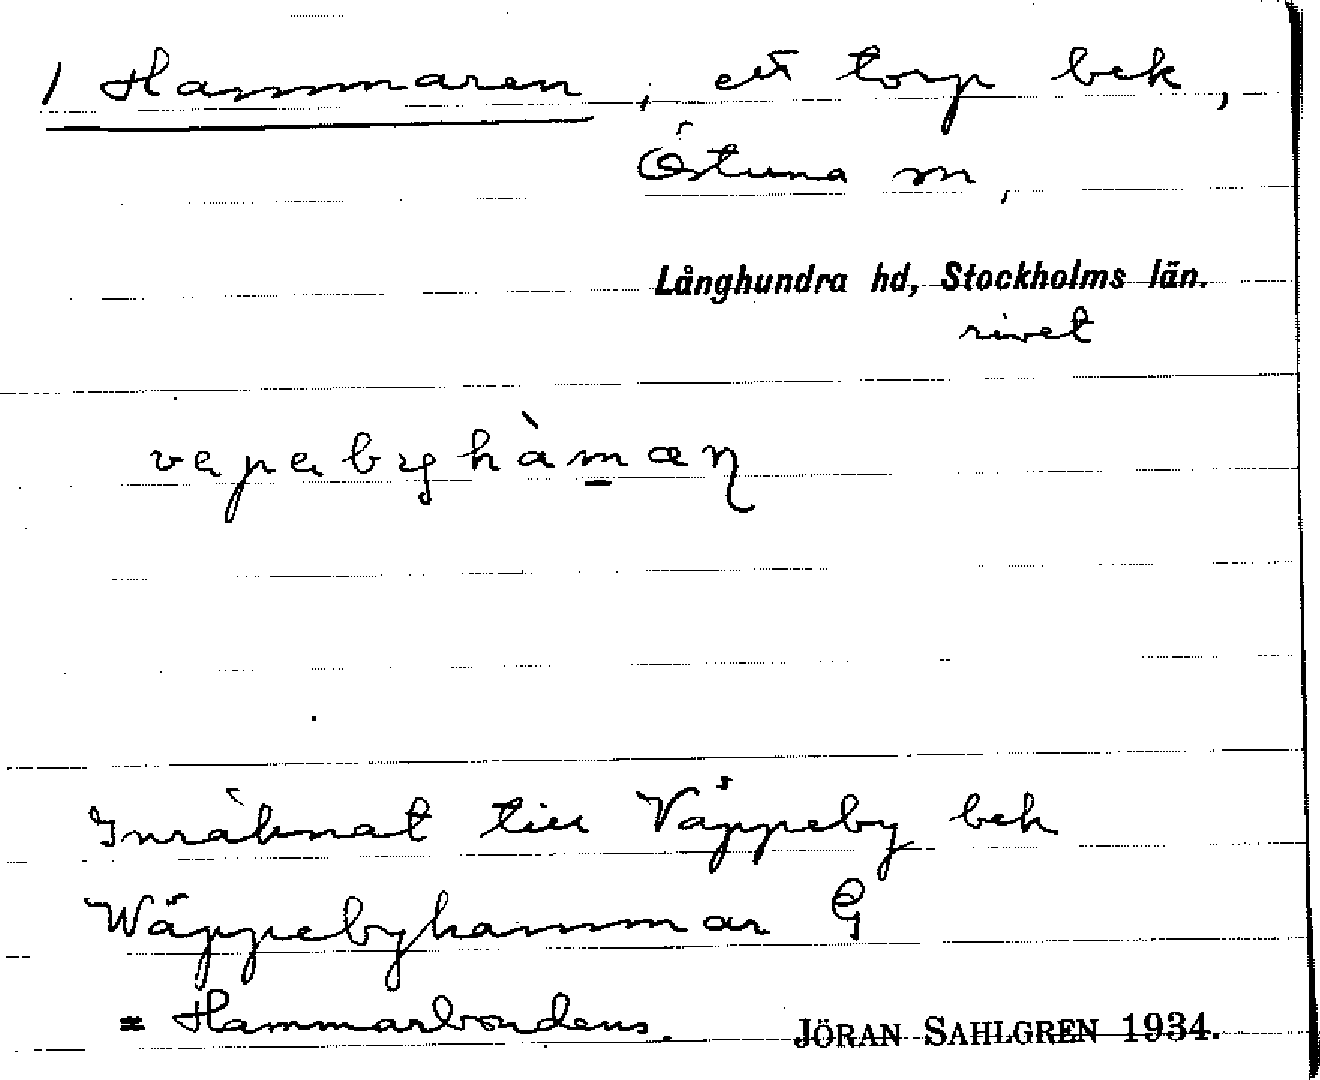 1 Hammaren, ett torp bek,
Östuna sn,
Långhundra hd, Stockholms län.
rivet
vepebyhàmæn
Inräknat till Väppeby bek
Wäppebyhammar G
= Hammarbondens.
JÖRAN SAHLGREN 1934.